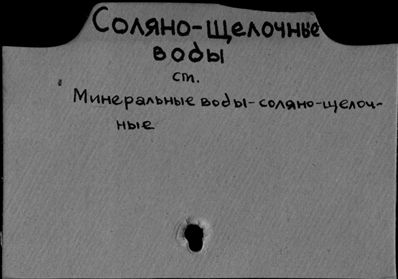 Соляно-щелочные
воды
ст.
Минеральные воды-соляно-щелоч-
ные